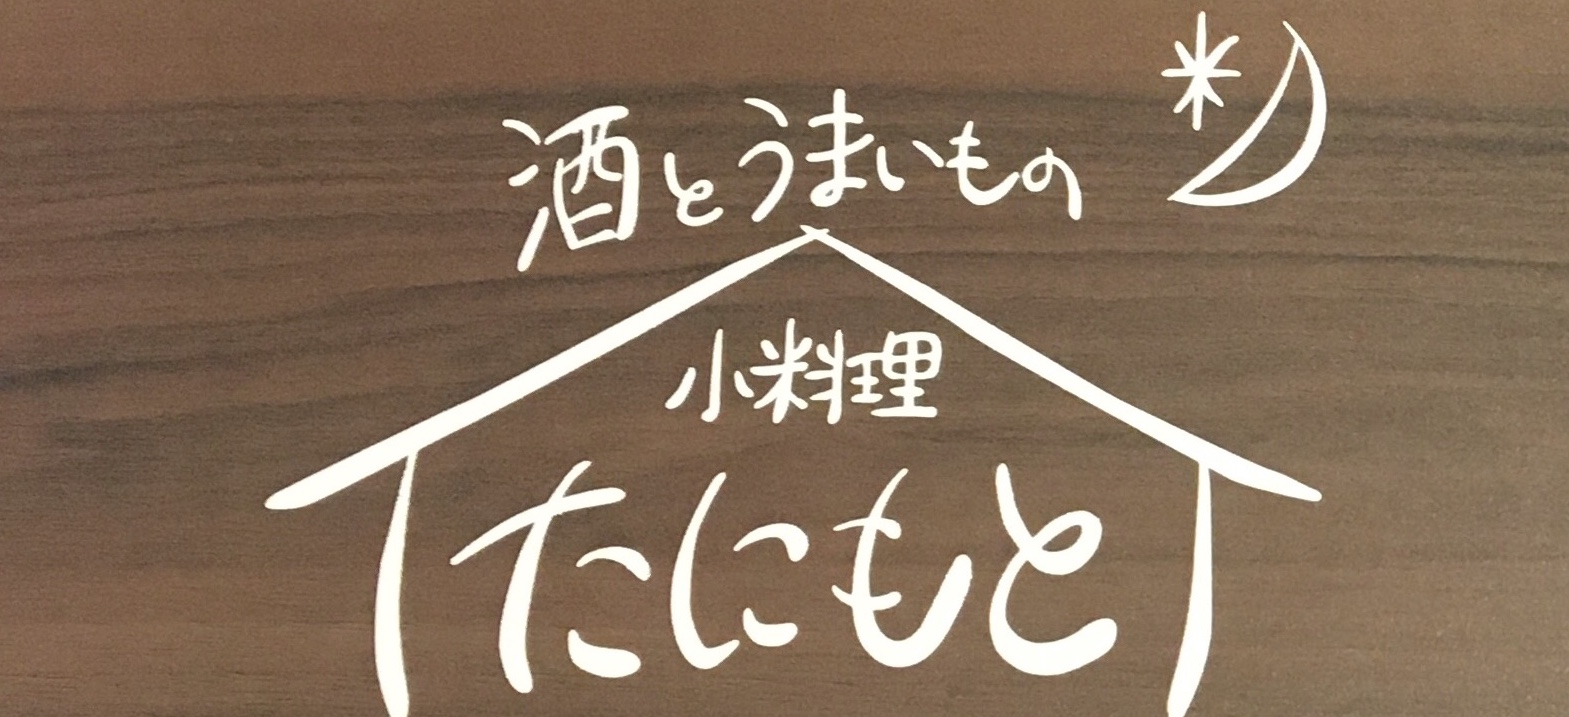 酒とうまいもの
小料理
たにもと